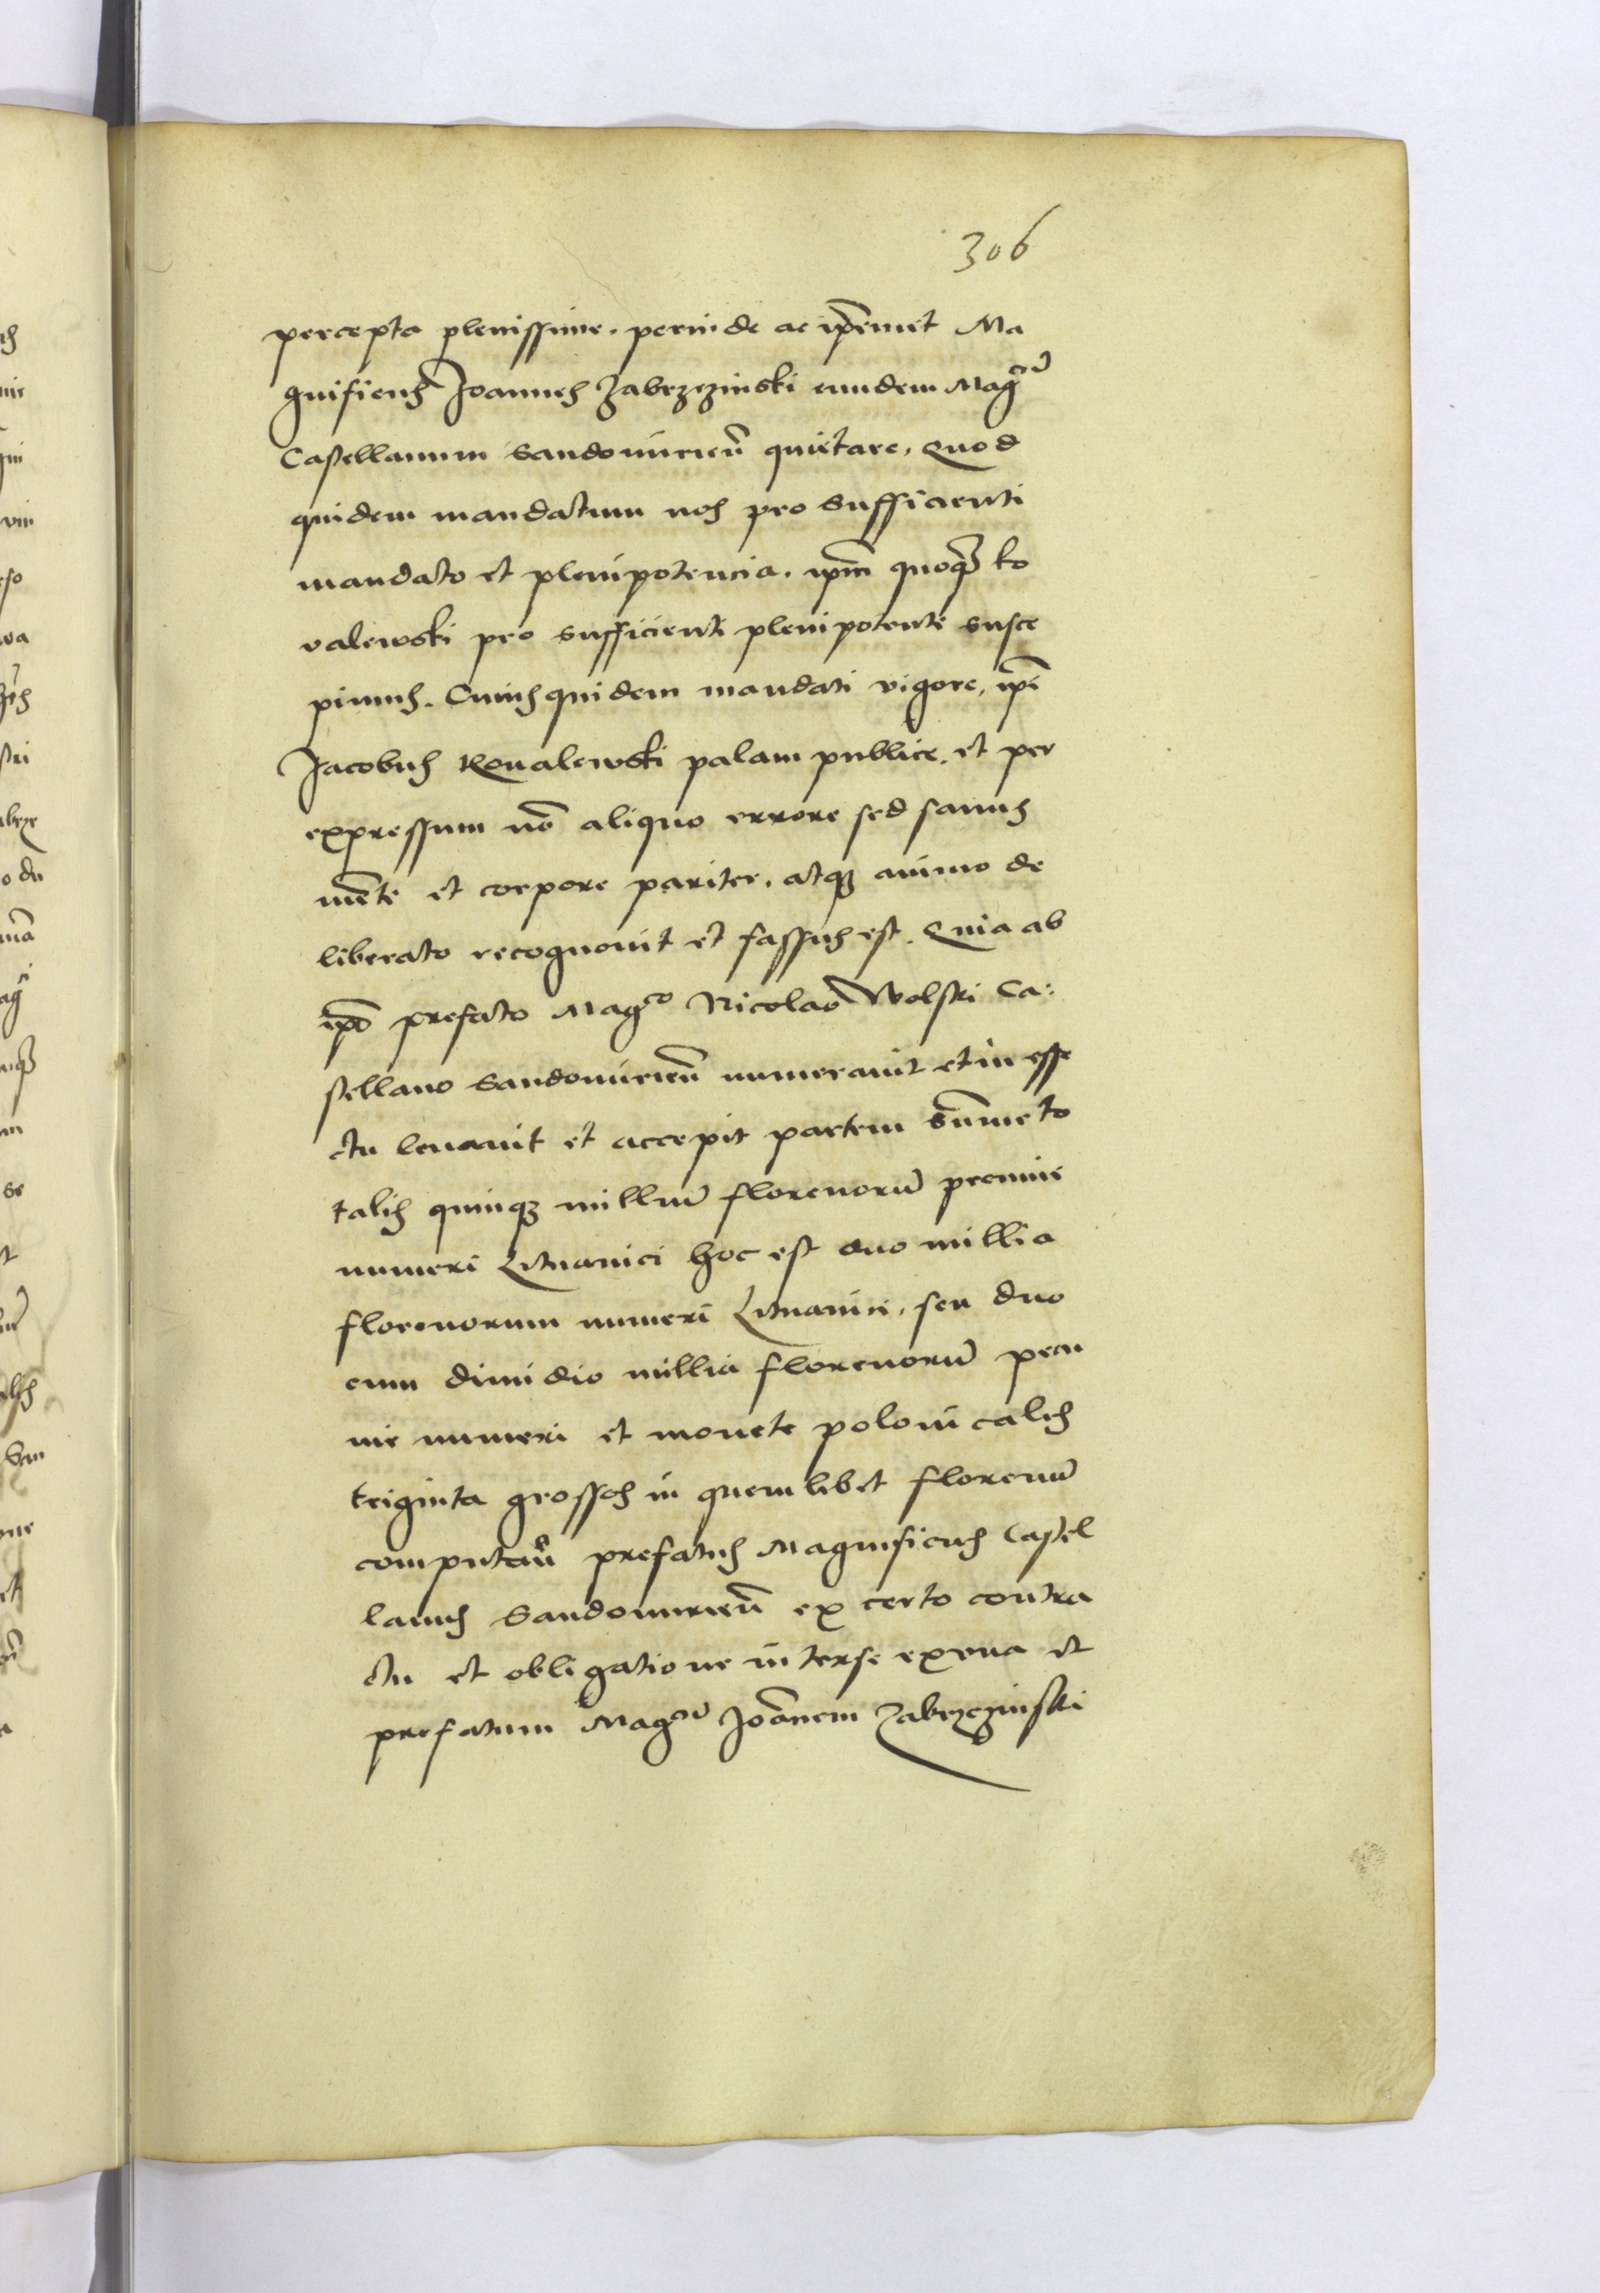 306
percepta plenissime. perinde ac ip̄emet Ma
gnificus Joannes Zabrzezinski eundem Magcū
Castellanum Sandomirien̄ quietare, Quod
quidem mandatum nos pro sufficienti
mandato et plenipotencia. ip̄m quoqȝ Ko
valewski pro sufficienti plenipotente susce
pimus. Cuius quidem mandati vigore, ip̄e
Jacobus Kovalewski palam publice. et per
expressum nō aliquo errore sed sanus
mēte et corpore pariter. atqȝ animo de
liberato recognovit et fassus est. Quia ab
ip̄o prefato Magco Nicolao Wolski Ca:
stellano Sandomirien̄ numeravit et in effe
ctu levavit et accepit partem sūme to
talis quinqȝ milliū florenorū pecunie
numeri Lituanici hoc est duo millia
florenorum numeri Lituanici, seu duo
cum dimidio millia florenorū pecu
nie numeri et monete polonicalis
triginta grossos in quemlibet florenū
computan̄ prefatus Magnificus Castel
lanus Sandomirien̄ ex certo contra
ctu et obligatione inter se ex una et
prefatum Magcū Joānem Zabrzezinski